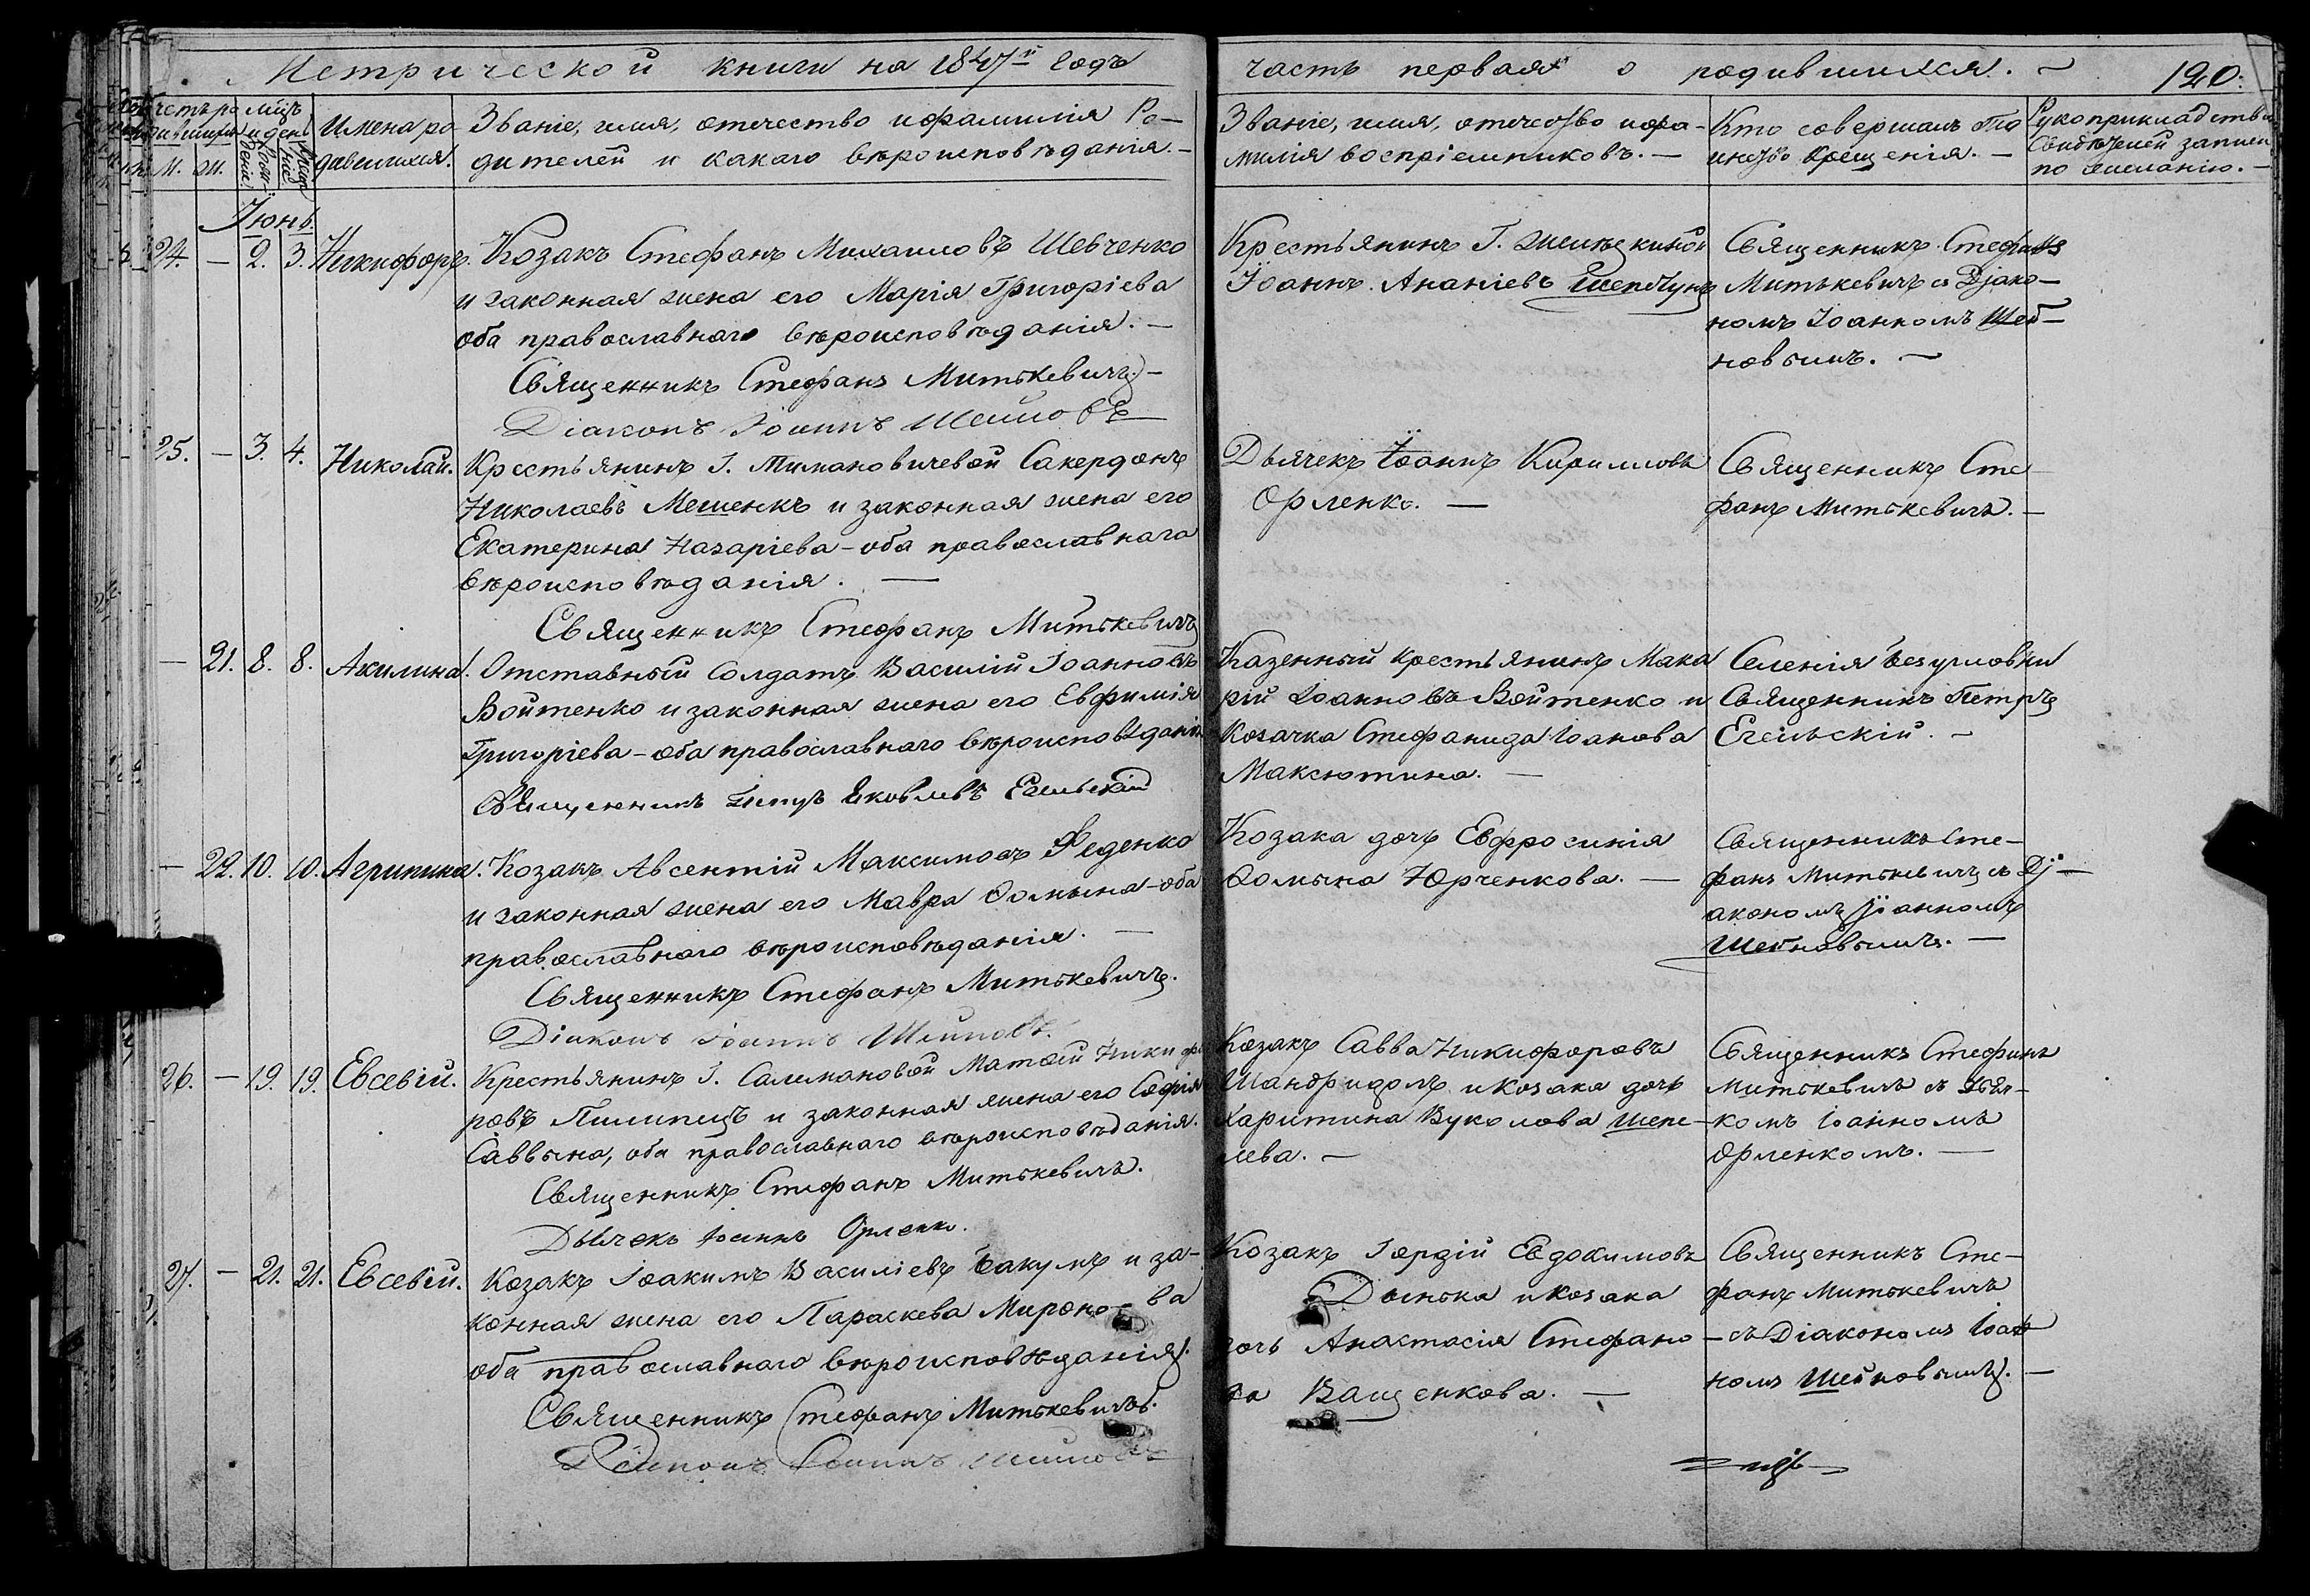 Метрической книги на 1847й годъ
часть первая о родившихся.
120.
Имена ро
дившихся.
Званіе, имя, отечество и фамилія Ро-
дителей и какаго вѣроисповѣданія.
Званіе, имя, отечество и фа-
милія воспріемниковъ.
Кто совершалъ Та
инство Крещенія.
Рукоприкладство
Свидѣтелей записи
по желанію.
М. Ж.
Іюнь.
24. — 2. 3. Никифоръ.
Козакъ Стефанъ Михаиловъ Шевченко
и законная жена его Марія Григоріева
оба православнаго вѣроисповѣданія.
Священникъ Стефанъ Митькевичъ
Діаконъ Іоаннъ Шейновъ
Крестьянинъ Г.
Іоаннъ Ананіевъ Шептунъ
Священникъ Стефанъ
Митькевичъ съ Діако-
номъ Іоанномъ Шей-
новымъ.
25. — 3. 4. Николай.
Крестьянинъ Г. Симановичевой Сакердонъ
Николаевъ Мешенкъ и законная жена его
Екатерина Назаріева - оба православнаго
вѣроисповѣданія.
Священникъ Стефанъ Митькевичъ
Дьячекъ Іоаннъ Кирилловъ
Орленко.
Священникъ Сте
фанъ Митькевичъ.
— 21. 8. 8. Акилина.
Отставный Солдатъ Василій Іоанновъ
Войтенко и законная жена его Евфимія
Григоріева - оба православнаго вѣроисповѣданія
Священникъ Петръ Яковлевъ
Казенный крестьянинъ Мака
рій Іоанновъ Войтенко и
Козачка Стефанида Іоанова
Максютина.
Селенія Безугловки
Священникъ Петръ
— 22. 10. 10. Агрипина.
Козакъ Авсентій Максимовъ Феденко
и законная жена его Мавра Ѳомина - оба
православнаго вѣроисповѣданія.
Священникъ Стефанъ Митькевичъ.
Діаконъ Іоаннъ Шейновъ.
Козака дочь Евфросинія
Ѳомина Юрченкова.
Священникъ Сте-
фанъ Митькевичъ съ Ді-
акономъ Іоанномъ
Шейновымъ.
26. — 19. 19. Евсевій.
Крестьянинъ Г. Салимановой Матѳій Никифо
ровъ Пилипецъ и законная жена его Софія
Саввина, оба православнаго вѣроисповѣданія.
Священникъ Стефанъ Митькевичъ.
Дьячекъ Іоаннъ Орленко.
Козакъ Савва Никифоровъ
и Козака дочь
Харитина Вуколова Шепе-
лева.
Священникъ Стефанъ
Митькевичъ съ Дьяч-
комъ Іоанномъ
Орленкомъ.
27. — 21. 21. Евсевій.
Козакъ Іоакимъ Василіевъ Бакумъ и за-
конная жена его Параскева Миронова
оба православнаго вѣроисповѣданія.
Священникъ Стефанъ Митькевичъ.
Діаконъ Іоаннъ Шейновъ
Козакъ Гордій Евдокимовъ
и Козака
дочь Анастасія Стефано
ва Ващенкова.
Священникъ Сте-
фанъ Митькевичъ
съ Діакономъ Іоан
номъ Шейновымъ.